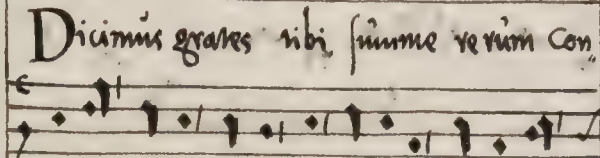 Dicimus grates tibi, summe rerum Con„